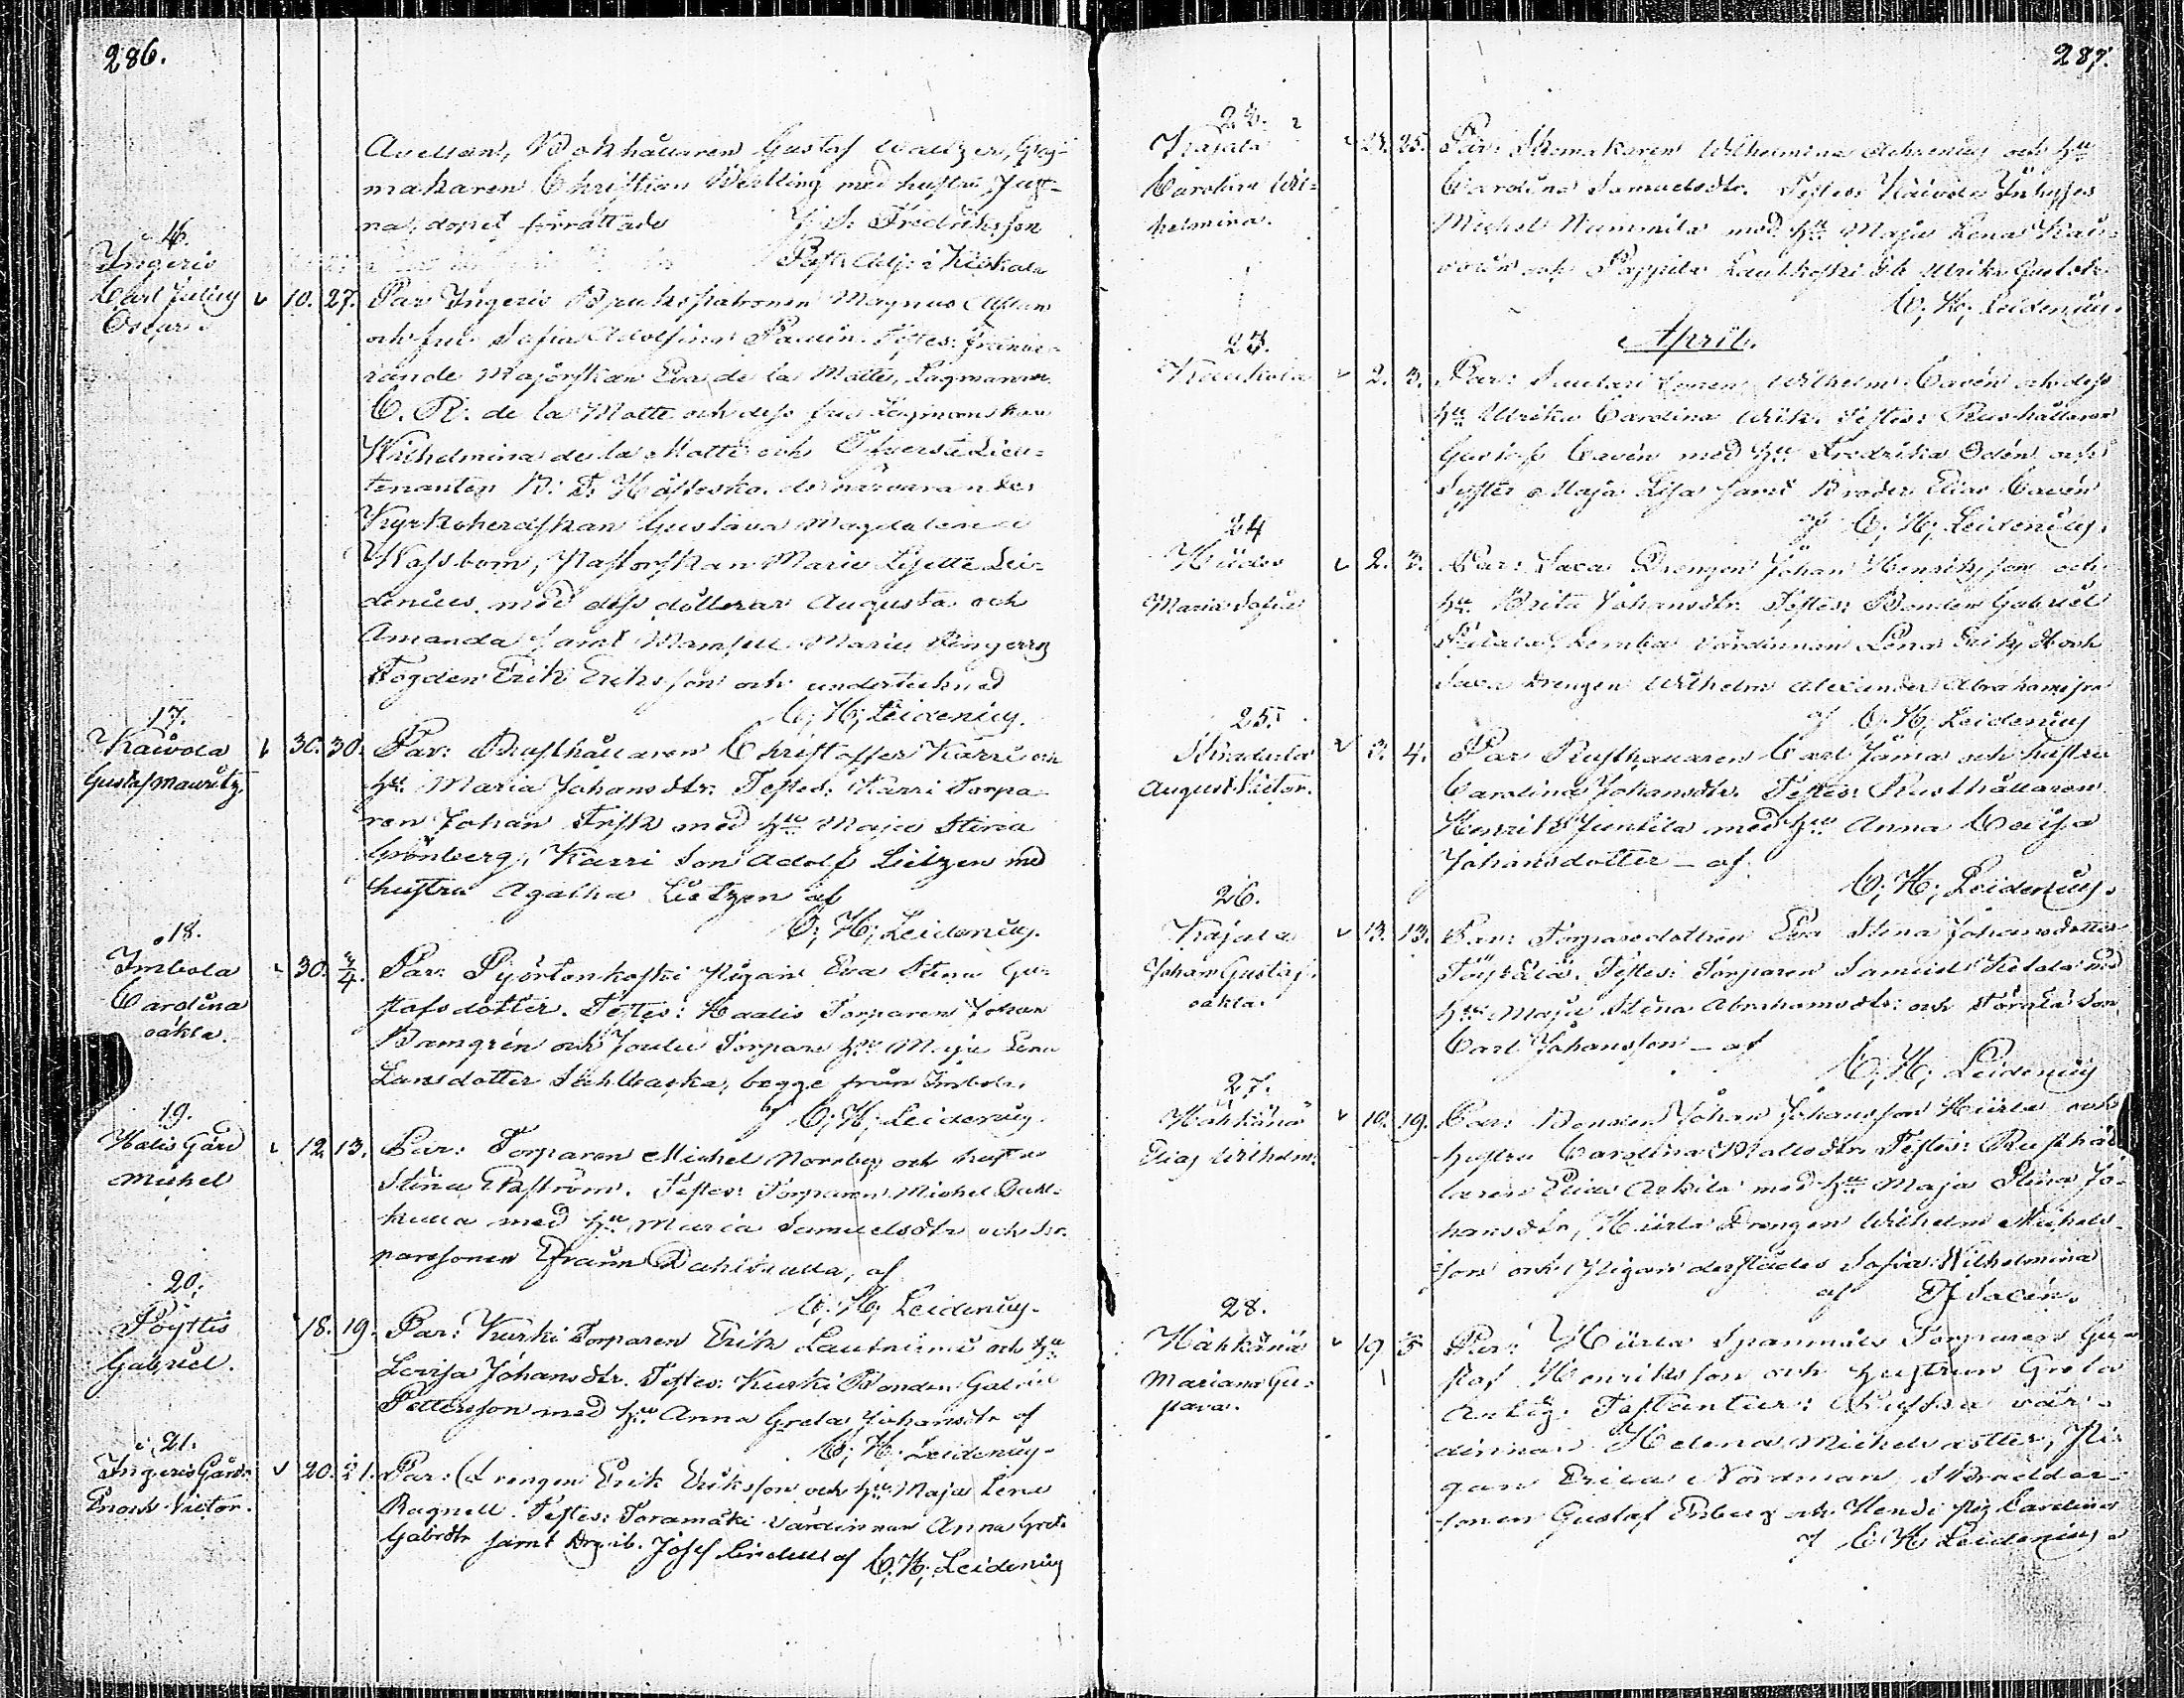 286.
Avellan, Bokhållaren Gustaf Walizer,
makaren Christian Welling med hustru Just-
na, dopet förrättade J. S. Fredriksson
Past. Adj. i Kiikala
16.
Ingeris
Carl Julius
Oscar
10. 27. Par Ingeris Brukspatronen Magnus
och fru Sofia Adolfina Pauin. Testes:
rande Majorskan Eva de la Motte, Lagmannen
C. R. de la Motte och dess fru Lagmanskan
Wilhelmina de la Motte och Öfverste Lieu-
tenanten de närvarande
Kyrkoherdskan Gustava Magdalena
Wassbom, Pastorskan Maria Lisette Lei-
denius med dess döttrar Augusta och
Amanda samt Mamsell Maria
Fogden Erik Eriksson och undertecknad
C; H; Leidenius.
17.
Kaivola
Gustaf Mauritz.
30. 30. Par: Rusthållaren Christoffer Karri och
hu Maria Johansdtr: Testes: Karri Torpa-
ren Johan Frisk med hu Maja Stina
Grönberg, Karri Son Adolf Lietzen med
hustru Agatha Lietzen af
C; H; Leidenius.
18.
Imbola
Carolina
oäkta.
30. 3/4. Par: Pyörtonkoski Pigan Eva Stina Gu-
stafsdotter. Testes: Haalis Torparen Johan
Bamgren och Joulu Torpare hu Maja Lena
Larsdotter begge från Imbola.
af C; H; Leidenius.
19.
Halis Gård
Michel
12. 13. Par: Torparen Michel Nornberg och hustru
Stina Ekström. Testes: Torparen Michel Dahl-
kulla med hu Maria Samuelsdtr och
parsonen Efraim Dahlkulla, af
C; H; Leidenius.
20.
Pöytis
Gabriel.
18. 19. Par: Kurki Torparen Erik Lautniemi och hu
Lovisa Johansdtr. Testes: Kurki Bonden Gabriel
Pettersson med hu Anna Greta Johansdtr af
C; H; Leidenius.
21.
Ingeris Gård
Enoch Victor.
20. 21. Par: Drengen Erik Eriksson och hu Maja Lena
Ragnell. Testes: Taramäki Värdinnan Anna Greta
Gabrdtr samt Josef Lindell af C; H; Leidenius
287.
22.
Kajala
Carolina Wil-
helmina.
24. 25. Par: Skomakaren Wilhelm och hu
Carolina Samuelsdtr. Testes: Kaivola Inhyses
Michel Nummila med hu Maja Lena
och Ulrika Gustafs
C; H; Leidenius.
April.
23.
Kaukola
2. 3. Par: Sonen Wilhelm Cavén och dess
hu Ulrika Carolina Wik. Testes: Rusthållaren
Gustaf Cavén med hu Fredrika Odén och
Syster Maja Lisa samt Broder Elias Cavén
af C; H; Leidenius.
24
Hiides
Maria Sofia
2. 3. Par: Saxa Drengen Johan Henriksson och
hu Brita Johansdtr. Testes: Bonden Gabriel
Värdinnan Lena och
Saxa Drengen Wilhelm Alexander Abrahamsson
af C; H; Leidenius
25.
August Victor.
3. 4. Par Rusthållaren Carl Jäma och hustru
Carolina Johansdtr. Testes: Rusthållaren
Henrik Juntila med hu Anna Caisa
Johansdotter – af
C; H; Leidenius.
26.
Kajala
Johan Gustaf.
oäkta.
13. 13. Par: Torparedottren Eva Stina Johansdotter
Testes: Torparen Samuel med
hu Maja Stina Abrahamsdtr: och Son
Carl Johansson – af
C; H; Leidenius
27.
Hähkänä
Elias Wilhelm.
10. 19. Par: Bonden Johan Johansson Hiirla och
hustru Carolina Matsdtr Testes: Rusthål-
laren Elias Arkila med hu Maja Stina Jo-
hansdtr, Hiirla Drengen Wilhelm Michels-
son och Pigan derstädes Sofia Wilhelmina
af F. Savén.
28.
Hähkänä
Mariana Gu-
stava.
19 Par: Hiirla Spanmåls Torparen Gu-
staf Henriksson och hustrun Greta
Testantur: värdinnan
Helena Michelsdotter, Pi-
gan Erica Nordman,
sonen Gustaf Enberg och Hendi pig Carolina
af C H Leidenius